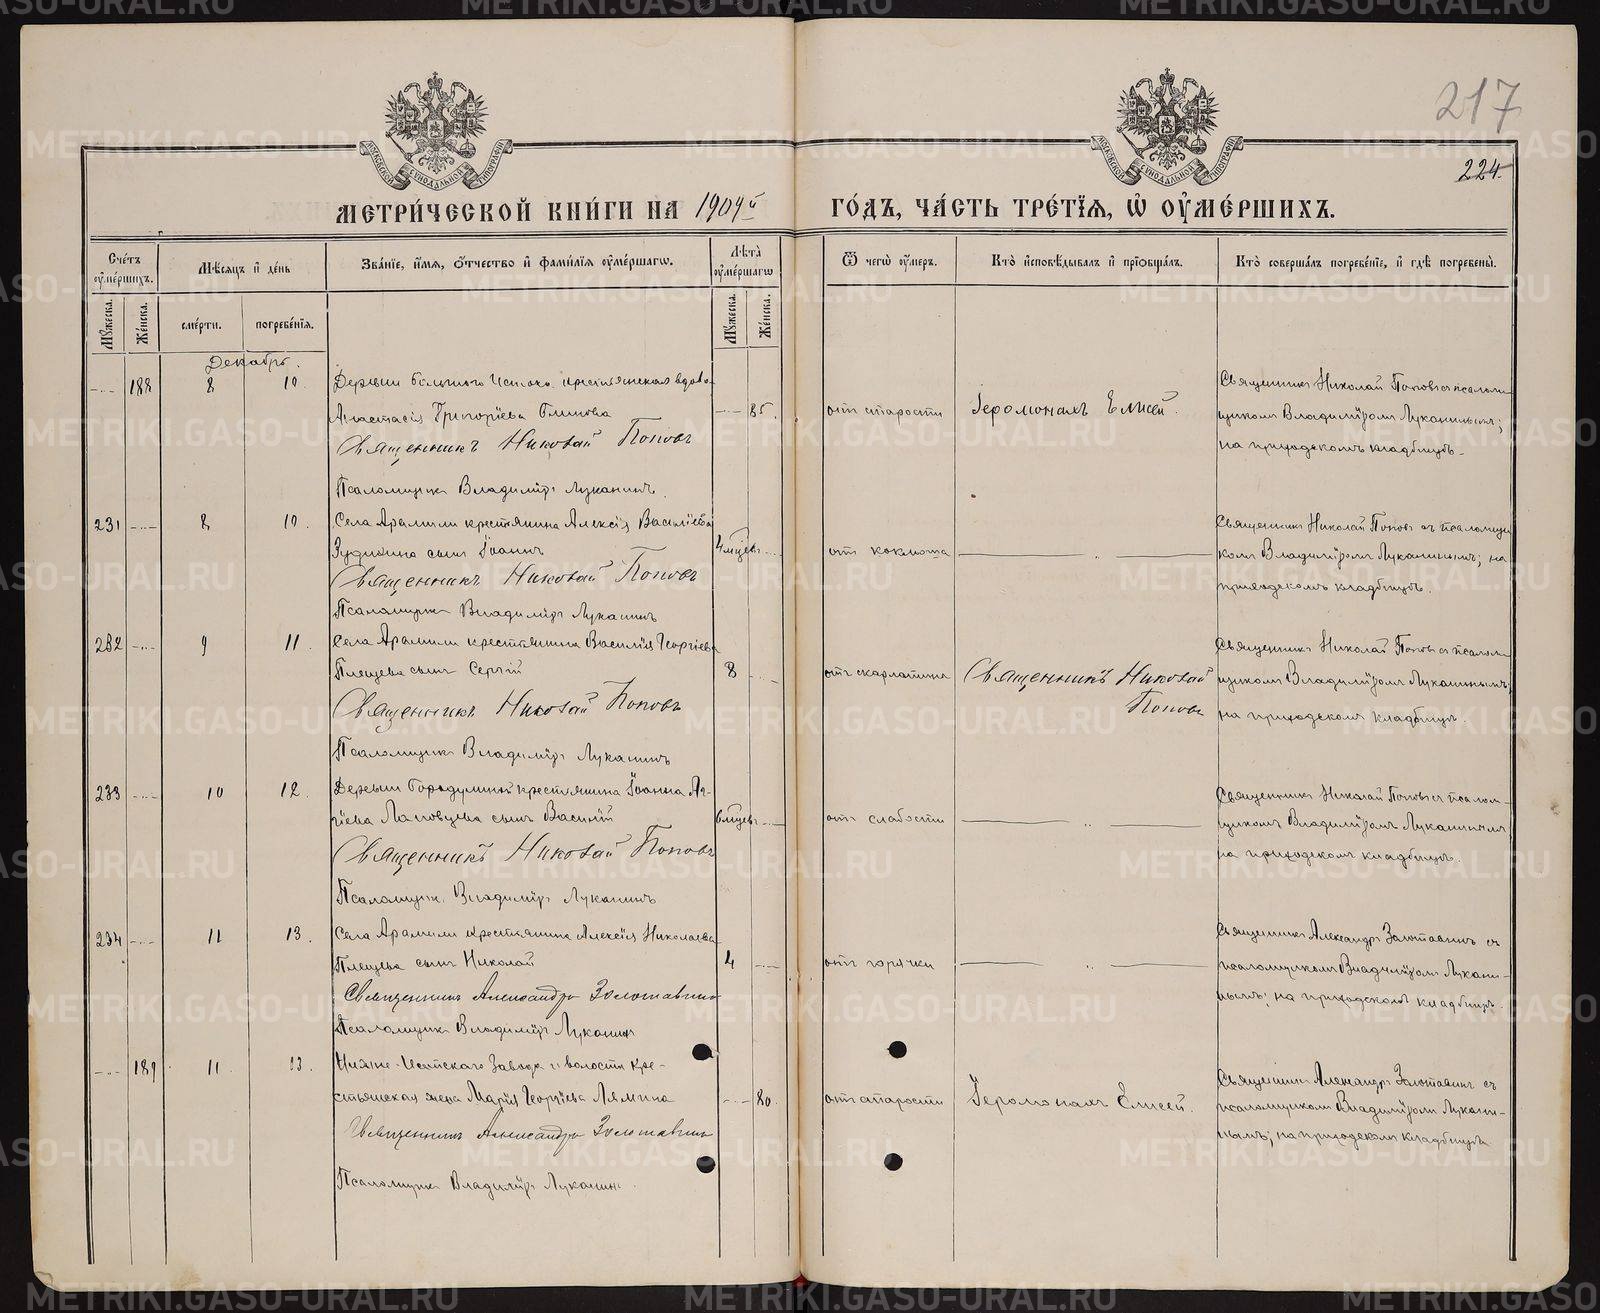 217
224.
МЕТРИЧЕСКОЙ КНИГИ НА 1904й ГОДЪ, ЧАСТЬ ТРЕТІЯ, Ѡ ОУМЕРШИХЪ.
Счетъ оумершихъ.
Мѣсяцъ и день
Званіе, имя, отчество и фамилія оумершагѡ.
Лѣта оумершагѡ
Ѿ чегѡ оумеръ.
Кто исповѣдывалъ и пріобщалъ.
Кто совершалъ погребеніе, и гдѣ погребены.
Мужеска. Женска.
смерти. погребенія.
Мужеска. Женска.
Декабрь.
188 8 10 Деревни Большого Истока крестьянская вдова
Анастасія Григоріева Блинова 85.
Священникъ Николай Поповъ
Псаломщикъ Владиміръ Луканинъ.
отъ старости
Іеромонахъ Елисей.
Священникъ Николай Поповъ с псалом-
щикомъ Владиміромъ Луканинымъ;
на приходскомъ кладбищѣ.
231 8 10. Села Арамили крестьянина Алексія Василіева
сынъ Іоаннъ 4 мѣсяц.
Священникъ Николай Поповъ
Псаломщикъ Владиміръ Луканинъ
отъ коклюша
Священникъ Николай Поповъ съ псаломщи
комъ Владиміромъ Луканинымъ; на
приходскомъ кладбищѣ.
232 9 11. Села Арамили крестьянина Василія Георгіева
Плещева сынъ Сергій 8
Священникъ Николай Поповъ
Псаломщикъ Владиміръ Луканинъ
отъ скарлатина
Священникъ Николай
Поповъ
Священникъ Николай Поповъ с псалом-
щикомъ Владиміромъ Луканинымъ;
на приходскомъ кладбищѣ.
233 10 12. Деревни крестьянина Іоанна
сынъ Василій 6 мѣсяц.
Священникъ Николай Поповъ
Псаломщикъ Владиміръ Луканинъ
отъ слабости
Священникъ Николай Поповъ с псалом-
щикомъ Владиміромъ Луканинымъ
на приходскомъ кладбищѣ.
234 11 13. Села Арамили крестьянина Алексія Николаева
Плещева сынъ Николай 4
Священникъ Александръ Золотавинъ
Псаломщикъ Владиміръ Луканинъ
отъ горячки
Священникъ Александръ Золотавинъ съ
псаломщикомъ Владиміромъ Лукани-
нымъ; на приходскомъ кладбищѣ.
189 11 13. Нижне-Исетскаго Завода и волости кре-
стьянская жена Марія Георгіева Лямина 80.
Священникъ Александръ Золотавинъ
Псаломщикъ Владиміръ Луканинъ.
отъ старости
Іеромонахъ Елисей.
Священникъ Александръ Золотавинъ съ
псаломщикомъ Владиміромъ Лукани-
нымъ; на приходскомъ кладбищѣ
METRIKI.GASO-URAL.RU